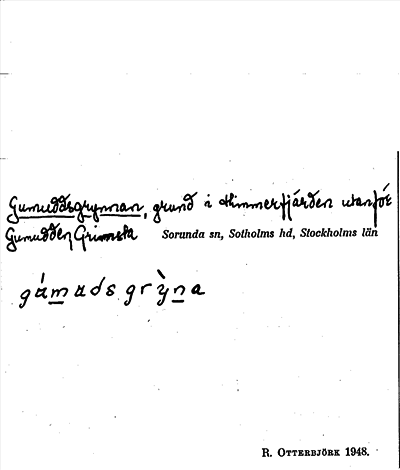 Gumuddsgrynnan, grund i Himmerfjärden utanför
Gumudden, Grimsta Sorunda sn, Sotholms hd, Stockholms län
gu̇mudsgry̆na
R. Otterbjörk 1948.